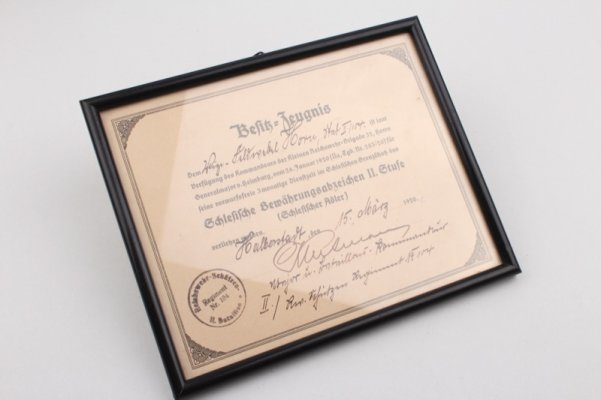 Besitz-Zeugnis
Dem Horn, ist laut
Verfügung des Kommandeurs der Kleinen Reichswehr-Brigade 31, Herrn
Generalmajor v. Heimburg, vom 26. Januar 1920 für
seine vorwurfsfreie 3 monatige Dienstzeit im Schlesischen Grenzschutz das
Schlesische Bewährungsabzeichen II. Stufe
(Schlesischer Adler)
verliehen worden.
Halberstadt, den 15. März 1920.
Major u. Bataillons-Kommandeur
II./ Rw. Schützen Regiment 104
Reichswehr-Schützen-
Regiment
Nr. 104
II. Bataillon